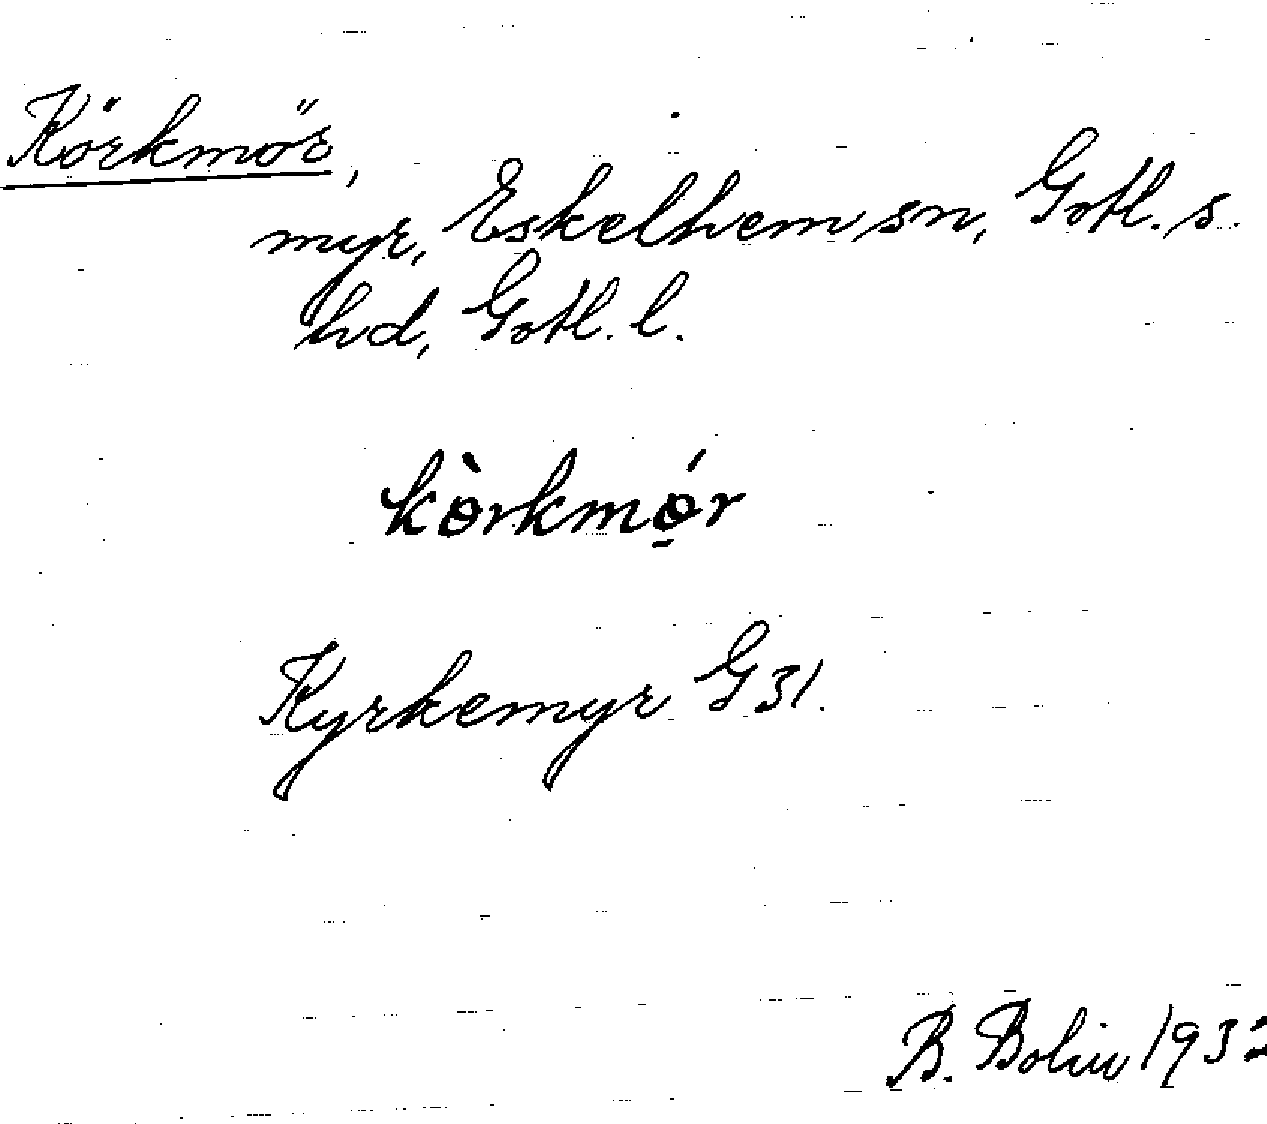 Körkmör,
myr, Eskelhem sn, Gotl. s.
hd, Gotl. l.
kɵ̀rkmɵ̠́r
Kyrkemyr G 31.
B. Bolin 1932